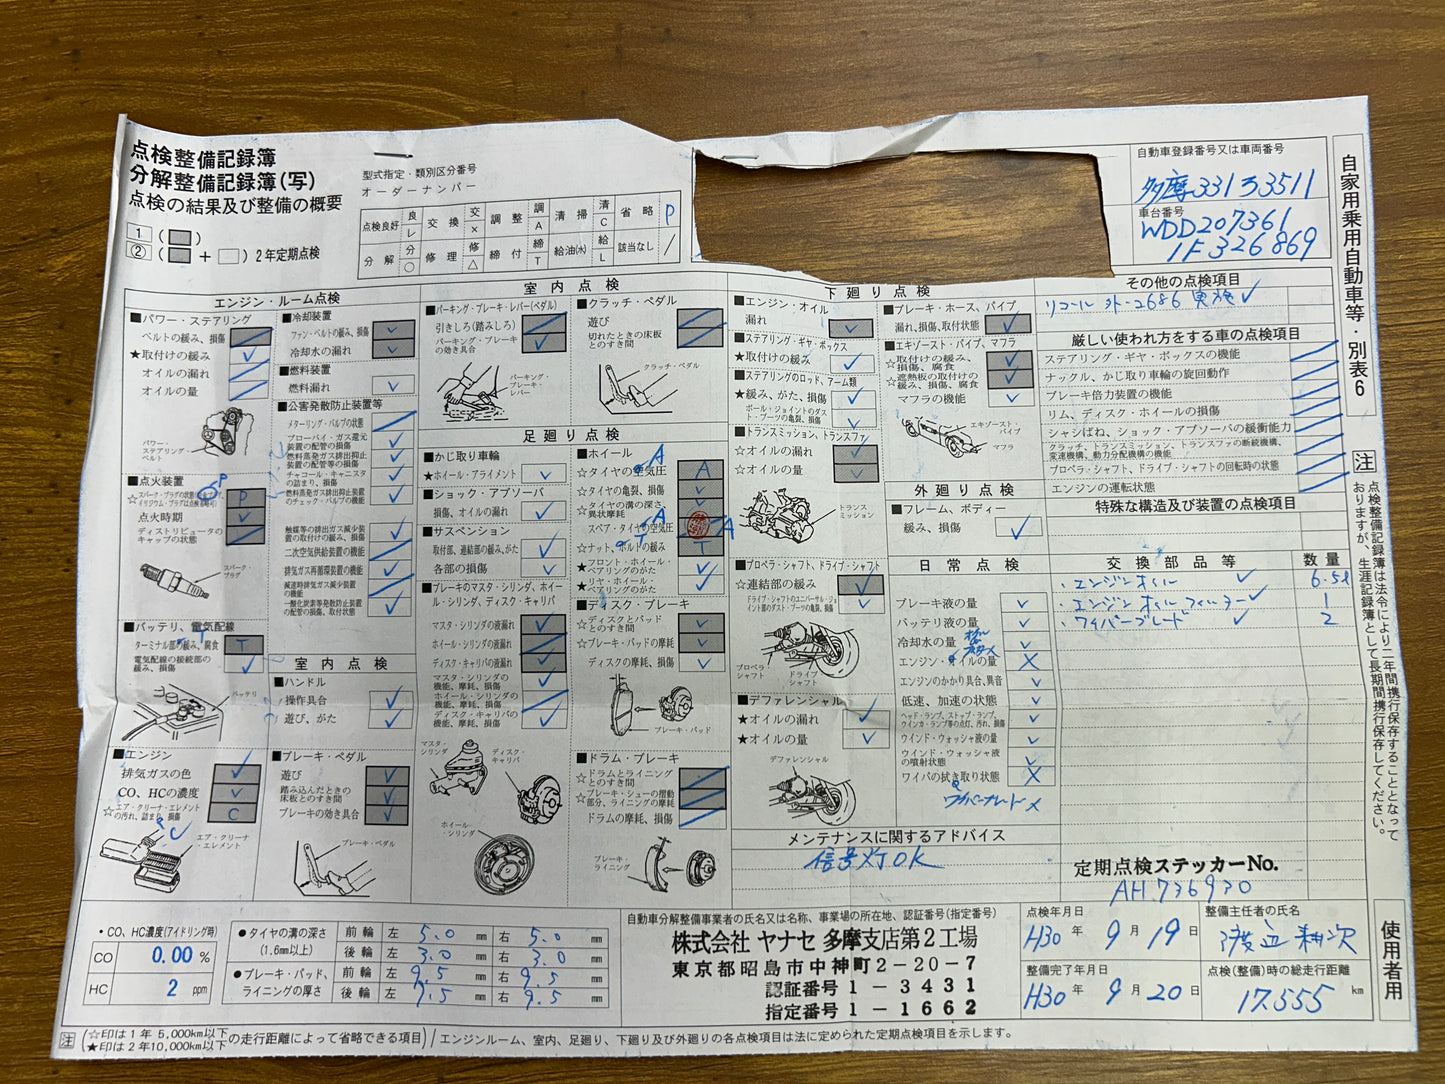 点検整備記録簿
分解整備記録簿(写)
点検の結果及び整備の概要
1 ( )
② ( + ) 2年定期点検
型式指定・類別区分番号
オーダーナンバー
点検良好 良 レ 交換 交 × 調整 調 A 清掃 清 C 省略 P
分解 分 ○ 修理 修 △ 締付 締 T 給油(水) 給 L 該当なし /
自動車登録番号又は車両番号
多摩331 3511
車台番号
WDD207361
1F326869
自家用乗用自動車等・別表6
エンジン・ルーム点検
■パワー・ステアリング
ベルトの緩み、損傷
★取付けの緩み
オイルの漏れ
オイルの量
パワー・ステアリングベルト
■点火装置
☆スパーク・プラグの状態
P
点火時期
ディストリビュータのキャップの状態
スパーク・プラグ
■バッテリ、電気配線
ターミナル部の緩み、腐食 T
電気配線の接続部の緩み、損傷
バッテリ
■エンジン
排気ガスの色
CO、HCの濃度
☆エア・クリーナ・エレメントの汚れ、詰まり、損傷 C
エア・クリーナ・エレメント
■冷却装置
ファン・ベルトの緩み、損傷
冷却水の漏れ
■燃料装置
燃料漏れ
■公害発散防止装置等
メターリング・バルブの状態
ブローバイ・ガス還元装置の配管の損傷
燃料蒸発ガス排出抑止装置の配管等の損傷
チャコール・キャニスタの詰まり、損傷
燃料蒸発ガス排出抑止装置のチェック・バルブの機能
触媒等の排出ガス減少装置の取付けの緩み、損傷
二次空気供給装置の機能
排気ガス再循環装置の機能
減速時排気ガス減少装置の機能
一酸化炭素等発散防止装置の配管の損傷、取付状態
室内点検
■ハンドル
操作具合
遊び、がた
■ブレーキ・ペダル
遊び
踏み込んだときの床板とのすき間
ブレーキの効き具合
ブレーキ・ペダル
室内点検
■パーキング・ブレーキ・レバー(ペダル)
引きしろ(踏みしろ)
パーキング・ブレーキの効き具合
パーキング・ブレーキ・レバー
■クラッチ・ペダル
遊び
切れたときの床板とのすき間
クラッチ・ペダル
足廻り点検
■かじ取り車輪
★ホイール・アライメント
■ショック・アブソーバ
損傷、オイルの漏れ
■サスペンション
取付部、連結部の緩み、がた
各部の損傷
■ブレーキのマスタ・シリンダ、ホイール・シリンダ、ディスク・キャリパ
マスタ・シリンダの液漏れ
ホイール・シリンダの液漏れ
ディスク・キャリパの液漏れ
マスタ・シリンダの機能、摩耗、損傷
ホイール・シリンダの機能、摩耗、損傷
ディスク・キャリパの機能、摩耗、損傷
マスタ・シリンダ
ディスク・キャリパ
ホイール・シリンダ
■ホイール
☆タイヤの空気圧 A
☆タイヤの亀裂、損傷
☆タイヤの溝の深さ、異状摩耗
スペア・タイヤの空気圧 A
☆ナット、ボルトの緩み T
★フロント・ホイール・ベアリングのがた
★リヤ・ホイール・ベアリングのがた
■ディスク・ブレーキ
☆ディスクとパッドとのすき間
☆ブレーキ・パッドの摩耗
ディスクの摩耗、損傷
ブレーキ・パッド
■ドラム・ブレーキ
☆ドラムとライニングとのすき間
☆ブレーキ・シューの摺動部分、ライニングの摩耗
ドラムの摩耗、損傷
ブレーキ・ライニング
下廻り点検
■エンジン・オイル
漏れ
■ステアリング・ギヤ・ボックス
★取付けの緩み
■ステアリングのロッド、アーム類
★緩み、がた、損傷
ボール・ジョイントのダスト・ブーツの亀裂、損傷
■トランスミッション、トランスファ
☆オイルの漏れ
☆オイルの量
トランスミッション
■プロペラ・シャフト、ドライブ・シャフト
☆連結部の緩み
ドライブ・シャフトのユニバーサル・ジョイント部のダスト・ブーツの亀裂、損傷
プロペラ・シャフト
ドライブ・シャフト
■デファレンシャル
★オイルの漏れ
★オイルの量
デファレンシャル
■ブレーキ・ホース、パイプ
漏れ、損傷、取付状態
■エキゾースト・パイプ、マフラ
☆取付けの緩み、損傷、腐食
☆遮熱板の取付けの緩み、損傷、腐食
マフラの機能
エキゾースト・パイプ
マフラ
外廻り点検
■フレーム、ボディー
緩み、損傷
日常点検
ブレーキ液の量
バッテリ液の量
冷却水の量
エンジン・オイルの量 ×
エンジンのかかり具合、異音
低速、加速の状態
ヘッド・ランプ、ストップ・ランプ、ウインカ・ランプ等の点灯、汚れ、損傷
ウインド・ウォッシャ液の量
ウインド・ウォッシャ液の噴射状態
ワイパの拭き取り状態 ×
ワイパーブレード ×
その他の点検項目
リコール 外-2686 実施
厳しい使われ方をする車の点検項目
ステアリング・ギヤ・ボックスの機能
ナックル、かじ取り車輪の旋回動作
ブレーキ倍力装置の機能
リム、ディスク・ホイールの損傷
シャシばね、ショック・アブソーバの緩衝能力
クラッチ、トランスミッション、トランスファの断続機構、変速機構、動力分配機構の機能
プロペラ・シャフト、ドライブ・シャフトの回転時の状態
エンジンの運転状態
特殊な構造及び装置の点検項目
交換部品等 数量
・エンジンオイル 6.5ℓ
・エンジンオイルフィルター 1
・ワイパーブレード 2
注 点検整備記録簿は法令により二年間携行保存することとなっておりますが、生涯記録簿として長期間携行保存してください。
メンテナンスに関するアドバイス
信号灯OK
定期点検ステッカーNo.
AH736930
・CO、HC濃度(アイドリング時)
CO 0.00 %
HC 2 ppm
●タイヤの溝の深さ(1.6mm以上)
前輪 左 5.0 mm 右 5.0 mm
後輪 左 3.0 mm 右 3.0 mm
●ブレーキ・パッド、ライニングの厚さ
前輪 左 9.5 mm 右 9.5 mm
後輪 左 9.5 mm 右 9.5 mm
自動車分解整備事業者の氏名又は名称、事業場の所在地、認証番号(指定番号)
株式会社 ヤナセ 多摩支店第2工場
東京都昭島市中神町2-20-7
認証番号 1-3431
指定番号 1-1662
点検年月日
H30年 9月 19日
整備完了年月日
H30年 9月 20日
整備主任者の氏名
点検(整備)時の総走行距離
17.555 km
使用者用
注 (☆印は1年 5,000km以下 ★印は2年10,000km以下 の走行距離によって省略できる項目) / エンジンルーム、室内、足廻り、下廻り及び外廻りの各点検項目は法に定められた定期点検項目を示します。